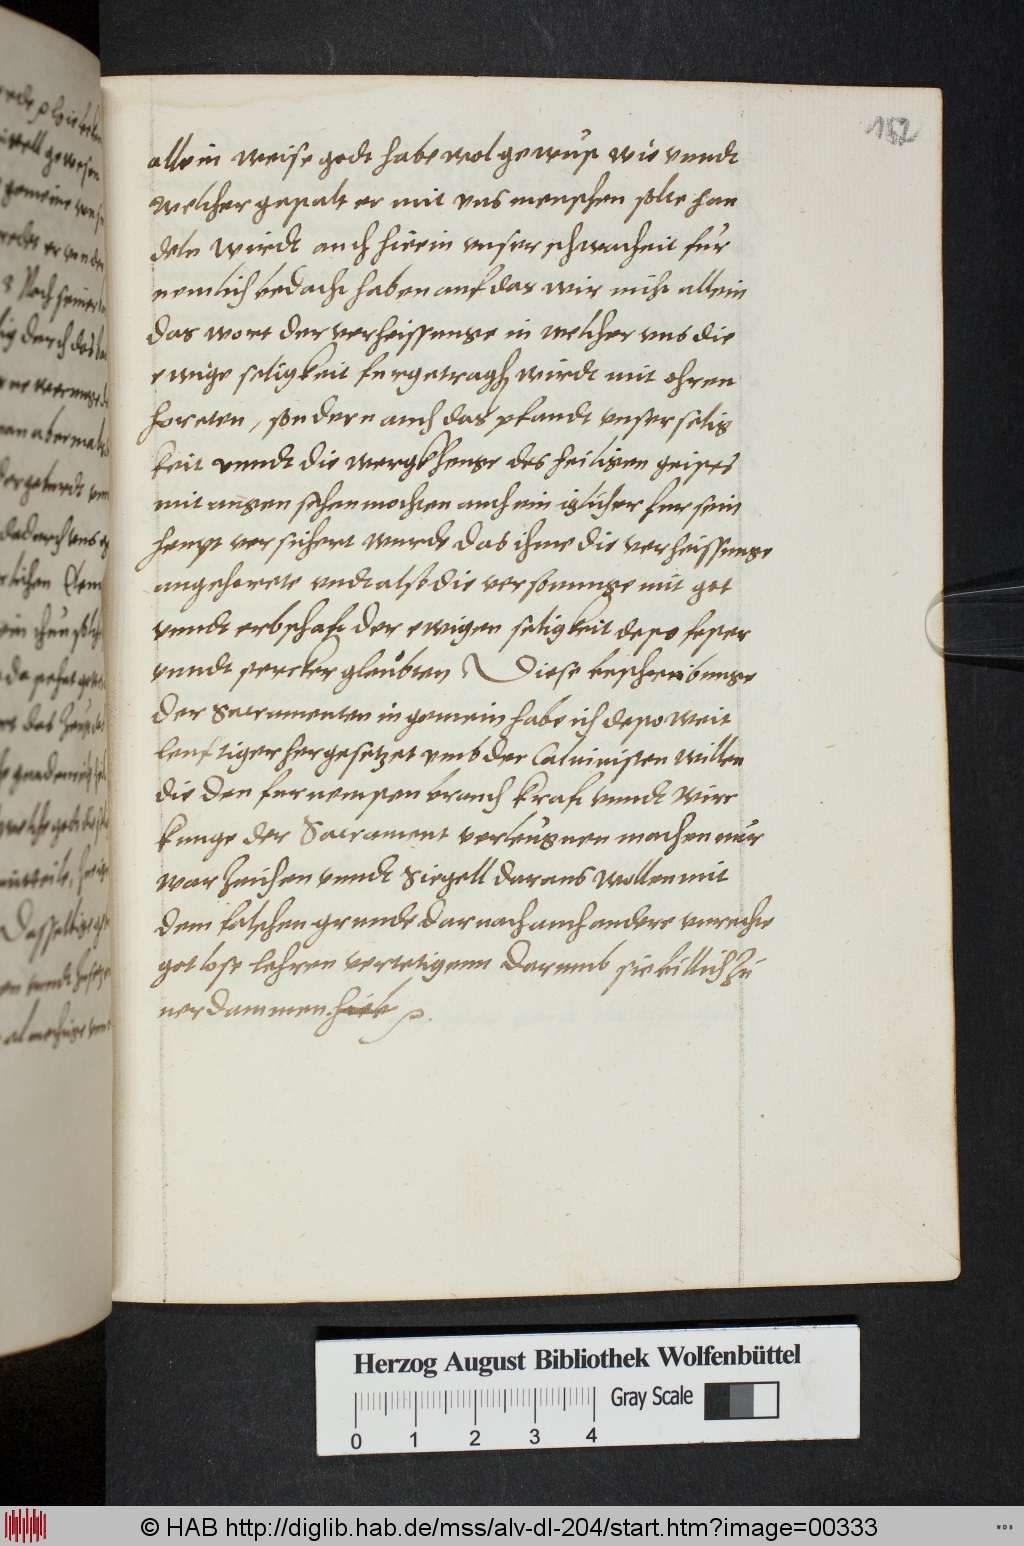 152
allein weise godt habe wol gewust wie vnndt
welcher gestalt er mit vns menschen solte han
deln wirdt auch hierin vnser schwacheit fur
nemlich bedacht haben auf das wir nicht allein
das wort der verheissunge in welcher vns die
ewige seligkeit furgetragen wirdt mit ohren
horeten, sondern auch das pfandt vnser selig
keit vnndt die wergkzeuge des heiligen geistes
mit augen sehen mochten auch ein iglicher fur sein
heupt versichert wurde das ihme die verheissunge
angehorete vndt also die versonunge mit got
vnndt erbschaft der ewigen seligkeit desto fester
vnndt stercker gleubten Diese beschreibunge
der Sacramenten in gemein habe ich desto weit
leuftiger hergesetzet vmb der Caluinisten willen
die den furnemsten brauch kraft vnndt wirc
kunge der Sacrament verleugnen machen nur
warzeichen vnndt Siegell daraus wollen mit
dem falschen grunde darnach auch andere vnrechte
gotlose lehren vertetigenn darumb sie billich zu
uerdammen
Herzog August Bibliothek Wolfenbüttel
0 1 2 3 4 Gray Scale
© HAB http://diglib.hab.de/mss/alv-dl-204/start.htm?image=00333